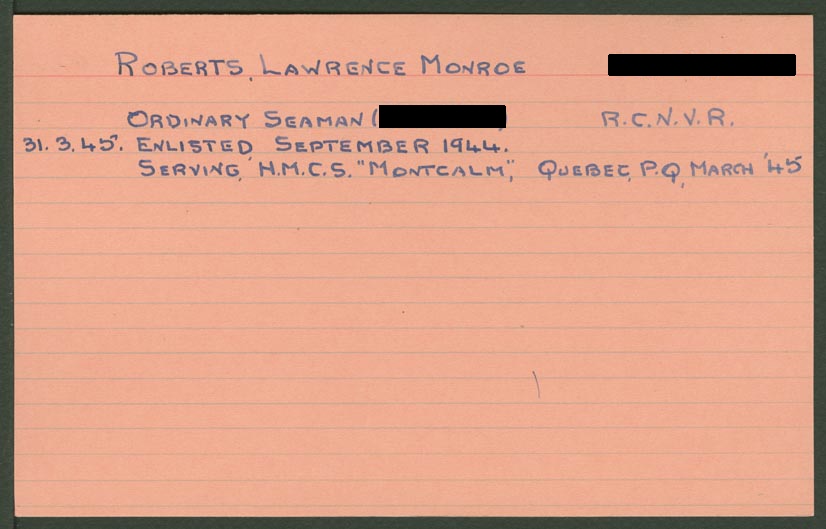 ROBERTS, LAWRENCE MONROE
ORDINARY SEAMAN ( R.C.N.V.R.
31.3.45. ENLISTED SEPTEMBER 1944.
SERVING, H.M.C.S. "MONTCALM", QUEBEC, P.Q, MARCH '45